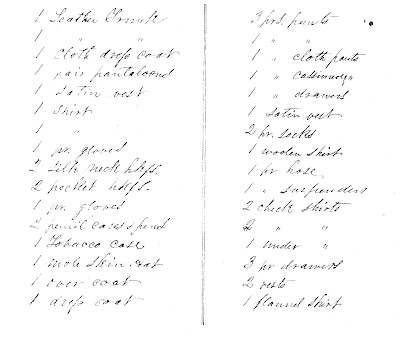 1 Leather Trunk
1 " "
1 cloth dress coat
1 pair pantaloons
1 Satin vest
1 Shirt
1 "
1 pr. gloves
2 Silk neck hkfs.
2 pocket hkfs.
1 pr. gloves
2 pencil cases & pend
1 Tobacco case
1 mole skin
1 over coat
1 dress coat
3 prs. pants
1 " "
1 " cloth pants
1 " cassimere "
1 " drawers
1 satin vest
2 pr. socks
1 woolen shirt
1 pr hose
1 " suspenders
2 check shirts
2 " "
1 under "
3 pr drawers
2 vests
1 flannel shirt